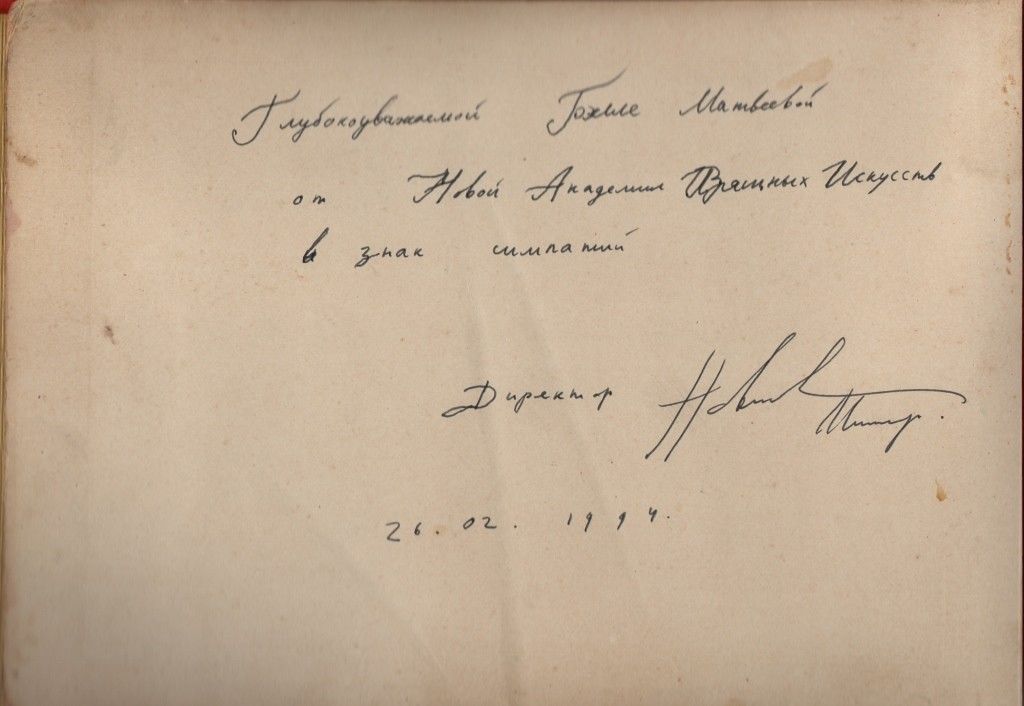 Глубокоуважаемой Матвеевой
от Новой Академии Изящных Искусств
в знак симпатий
Директор Новиков
26.02.1994.